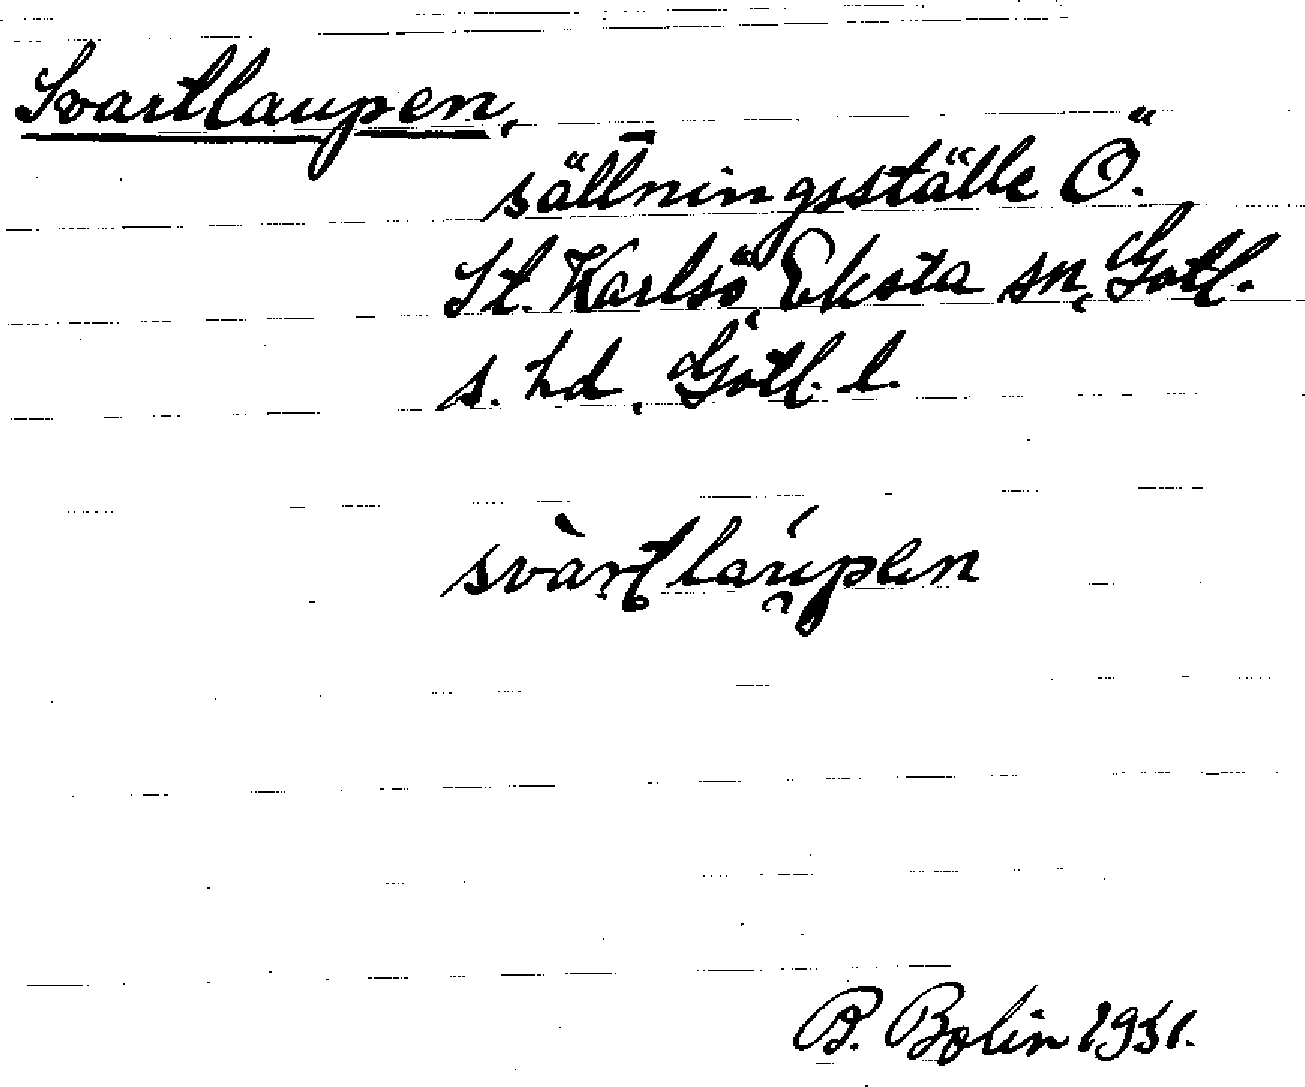 Svartlaupen,
sällningsställe Ö.
St. Karlsö, Eksta sn, Gotl.
s. hd, Gotl. l.
svàrtláupen
B. Bolin 1951.